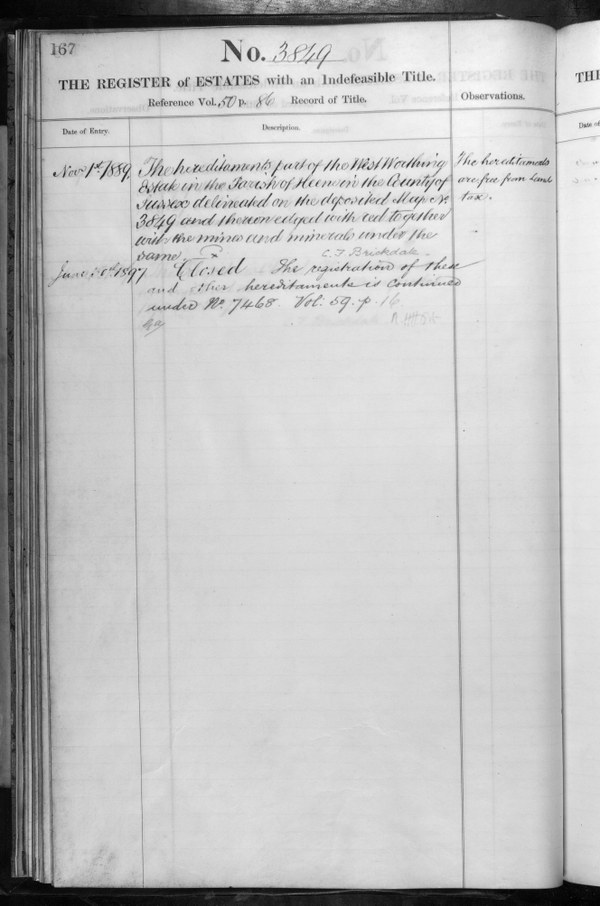 167
No. 3849
THE REGISTER of ESTATES with an Indefeasible Title.
Reference Vol. 50 p. 86 Record of Title.
Observations.
Date of Entry.
Description.
Nov 1st 1889
The hereditaments part of the West Worthing
Estate in the Parish of Heene in the County of
Sussex delineated on the deposited Map No.
3849 and thereon edged with red together
with the mines and minerals under the
same
C F Brickdale.
The hereditaments
are free from Land
tax.
June 1897
Closed The registration of these
and other hereditaments is continued
under No. 7468 Vol: 59. p. 16
THE
Date of